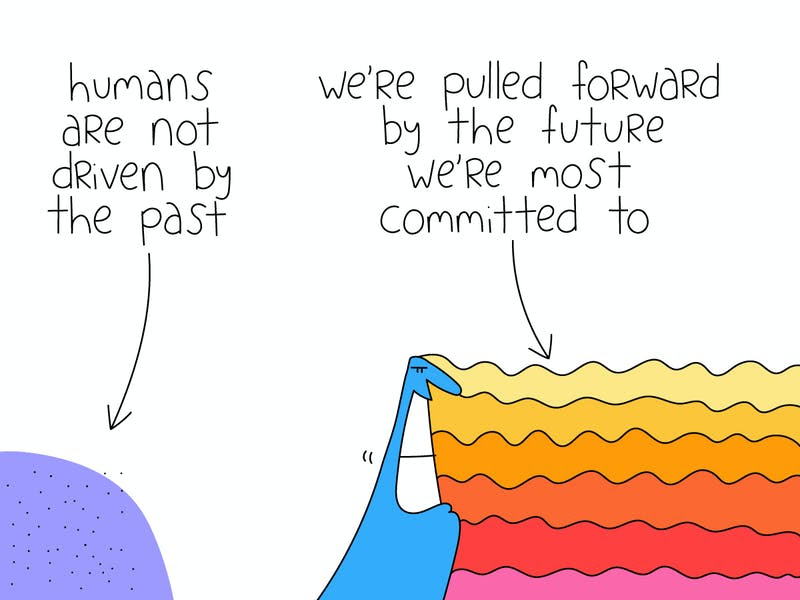 humans
are not
driven by
the past
we're pulled forward
by the future
we're most
committed to